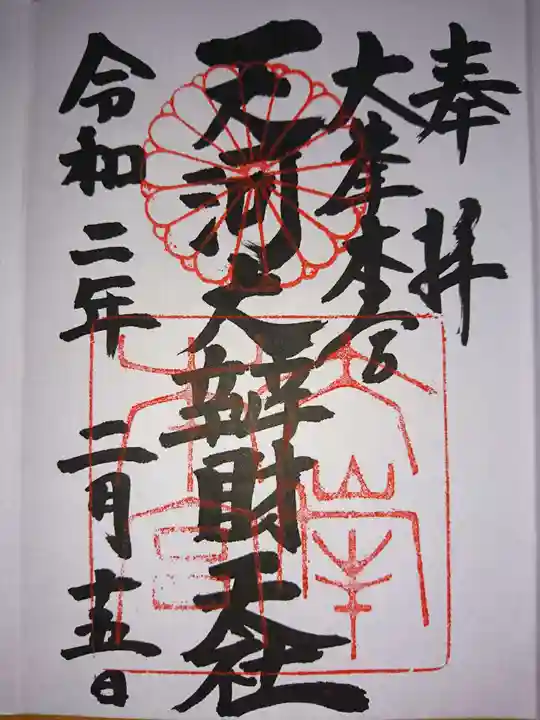 奉拝
大峯本宮
天河大辨財天社
令和二年 二月十五日
大峯
本宮